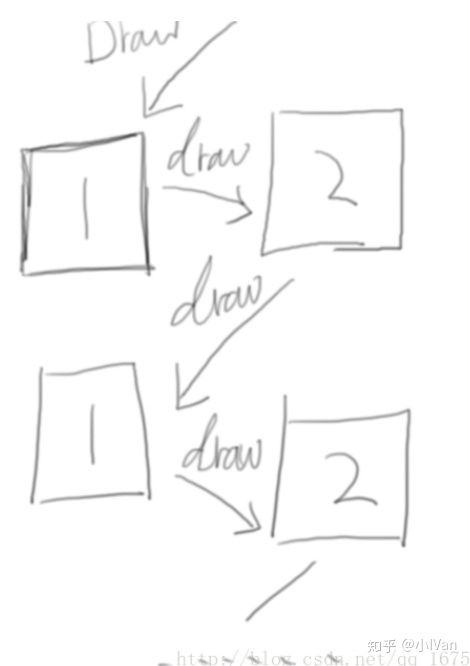 Draw
draw
1
2
draw
1
draw
2
知乎 @小IVan
http://blog.csdn.net/qq_1675